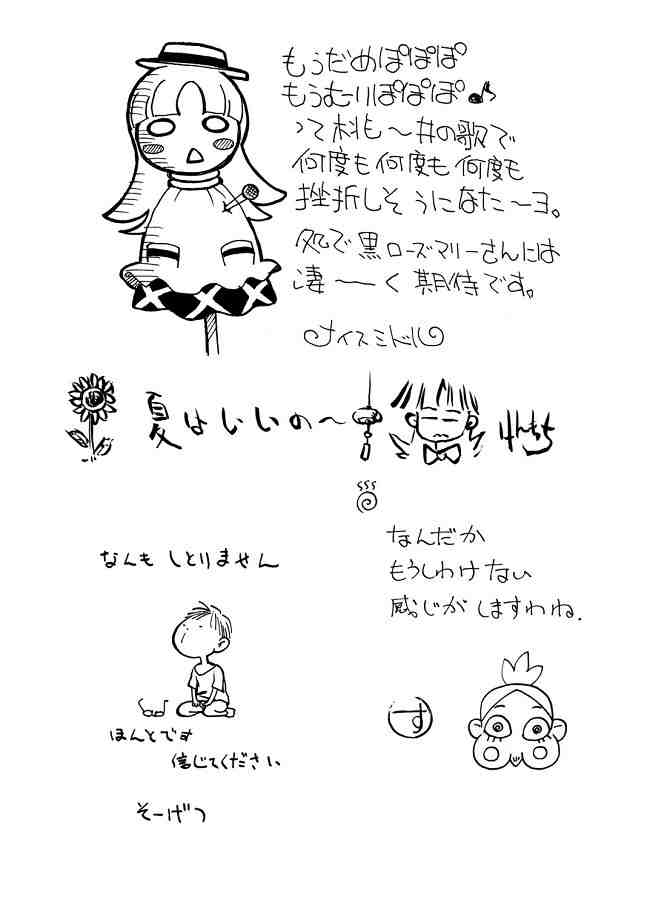 もうだめぽぽぽ
もうむりぽぽぽ♪
って桃也〜井の歌で
何度も何度も何度も
挫折しそうになた〜ヨ。
処で黒ローズマリーさんには
凄〜く期待です。
ナイスミドル
夏はいいの〜
けんちち
なんだか
もうしわけない
感じがしますわね.
す
なんもしとりません
ほんとです
信じてください
そーげつ